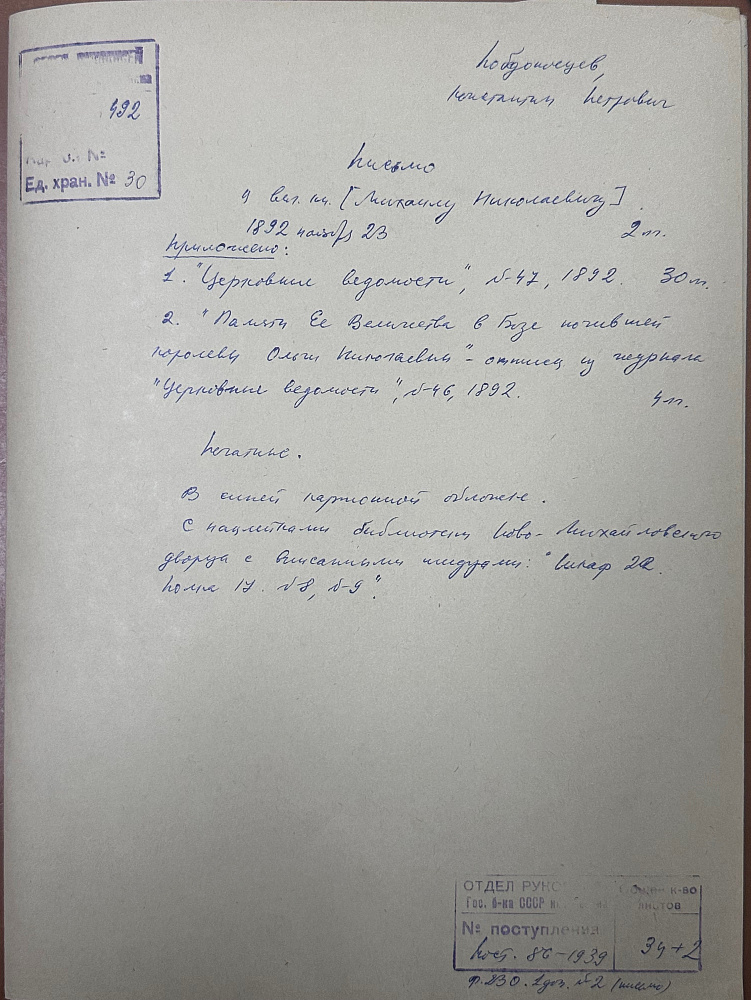 492
Ед. хран. № 30
Победоносцев,
Константин Петрович
Письмо
вел. кн. [Михаилу Николаевичу]
1892 ноябрь 23 2 лл.
Приложено:
1. "Церковные ведомости", №47, 1892. 30 лл.
2. "Памяти Ее Величества в Бозе почившей
королевы Ольги Николаевны" - оттиск из журнала
"Церковные ведомости", №46, 1892.
4 лл.
Печатные.
В синей картонной обложке.
С наклейками библиотеки Ново-Михайловского
дворца с вписанными индексами: "Шкаф 22.
Полка 17. №8, №9".
ОТДЕЛ
Гос. б-ка СССР
к-во
листов
№ поступления
Пост. 86-1939
34+2
ф. 230. 1 доп. №2 (письмо)